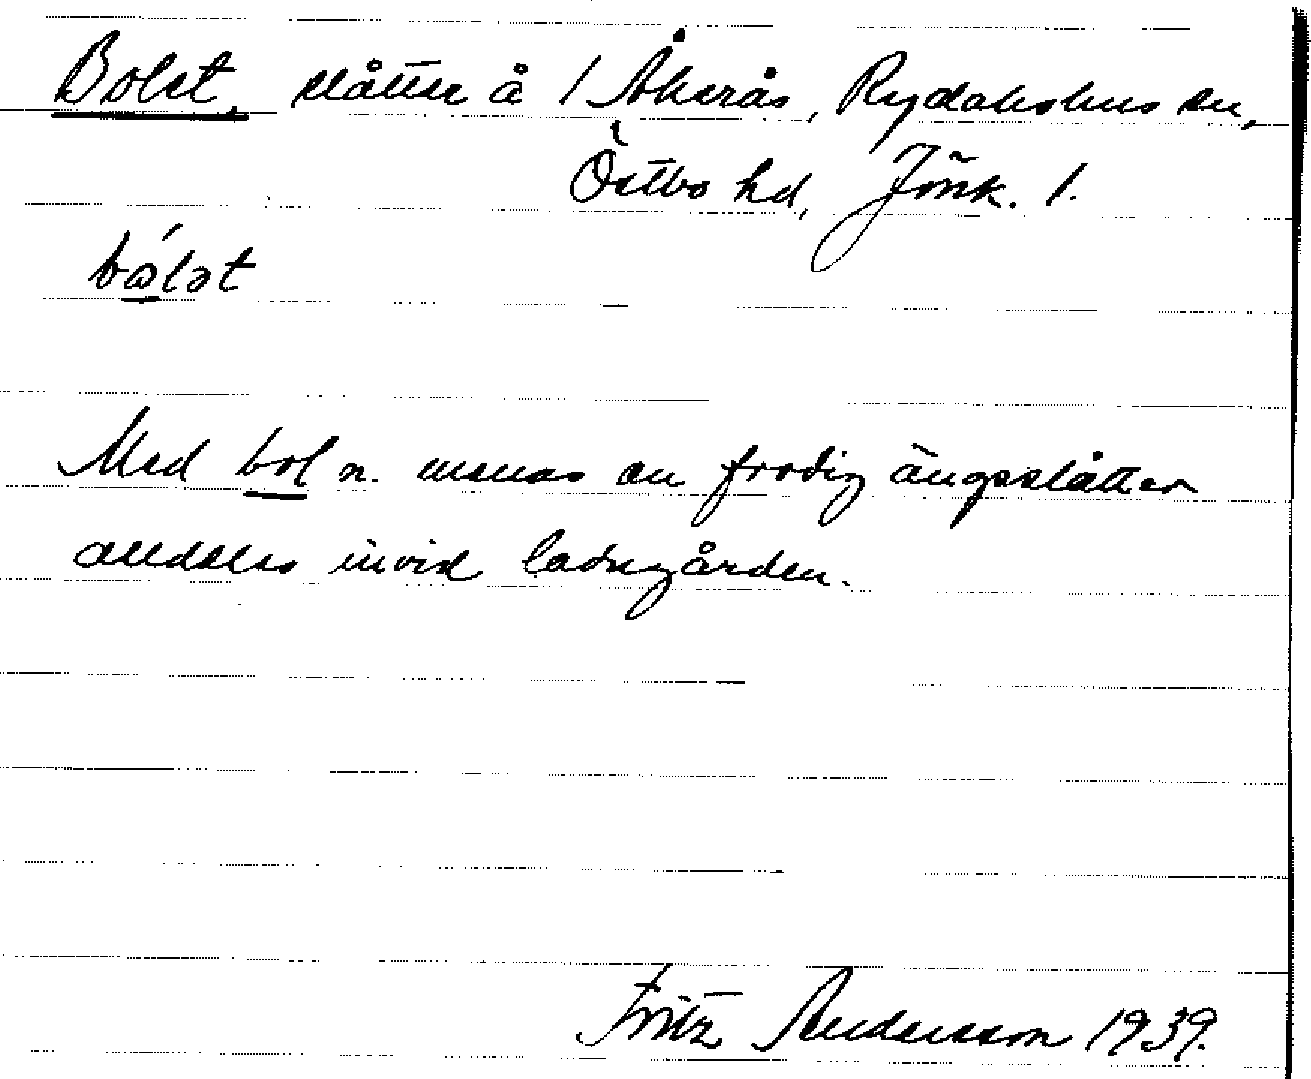 Bolet, slåtter å 1 Åkerås, Rydaholms sn,
Östbo hd, Jönk. l.
bólət
Med bol n. menas en frodig ängsslåtter
alldeles invid ladugården.
Fritz Andersson 1939.